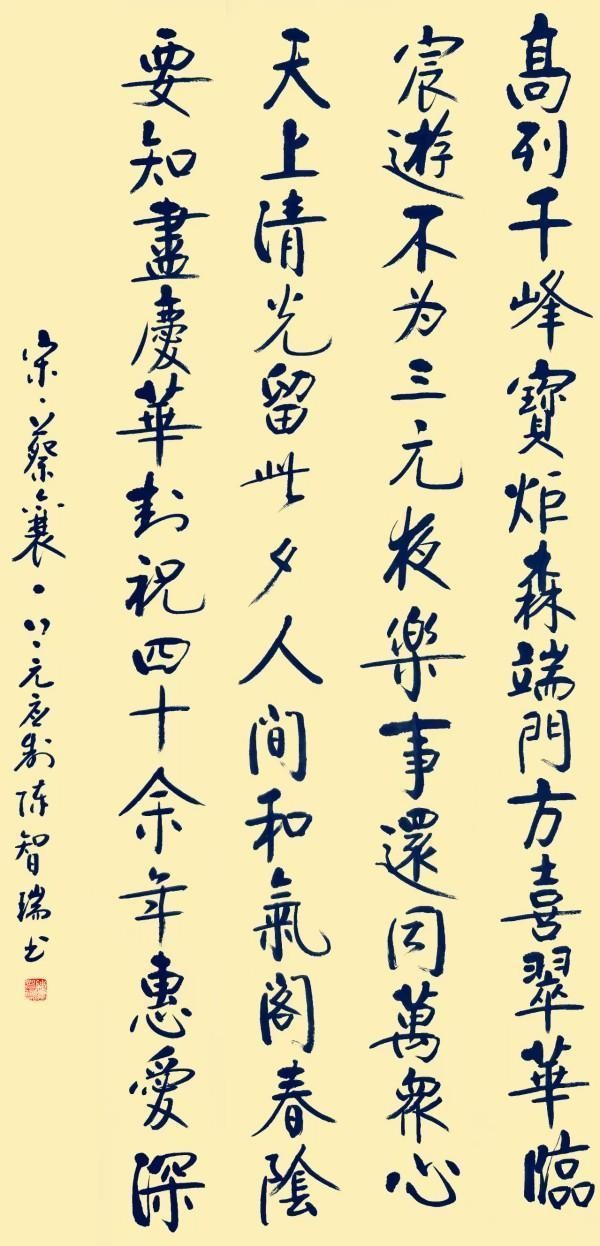 髙列千峰寶炬森端門方喜翠華臨
宸遊不为三元夜樂事還同萬衆心
天上清光留此夕人間和氣阁春陰
要知盡慶華封祝四十余年惠愛深
宋·蔡襄·上元应制陈智瑞书